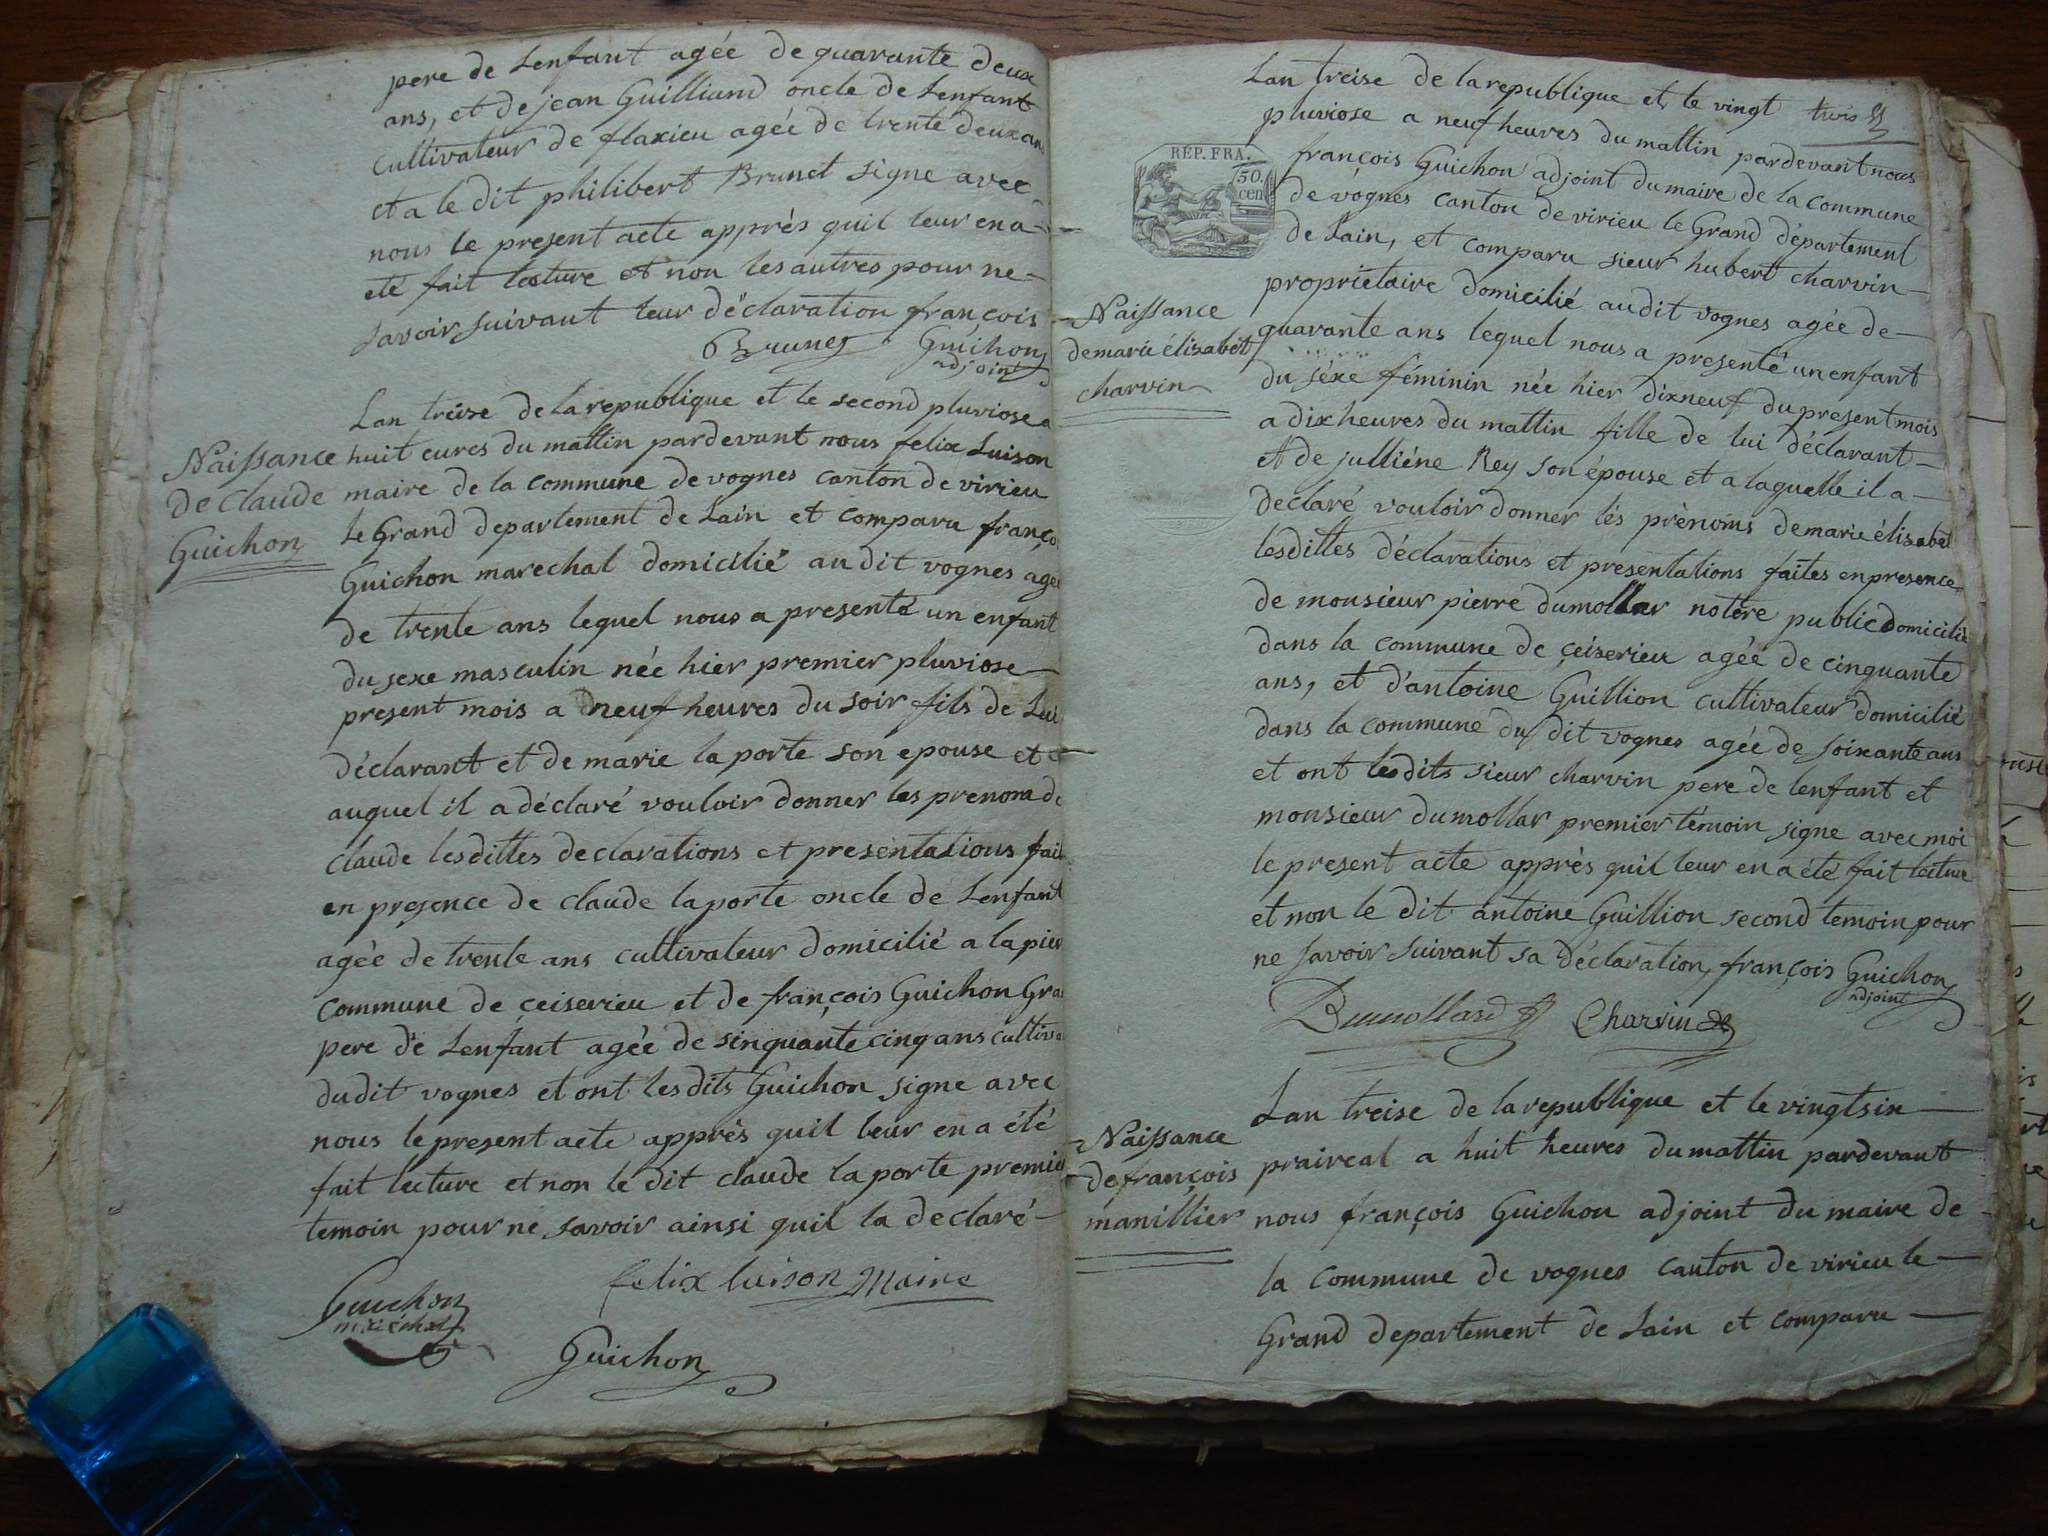 pere de Lenfant agée de quarante deux
ans, et de jean Guilliand oncle de Lenfant
cultivateur de flaxieu agée de trente deux ans
et a le dit philibert Brunet signe avec
nous le present acte apprès quil leur en a
eté fait lecture et non les autres pour ne
savoir suivant leur déclaration françois
Brunet Guichon
adjoint
Naissance
de Claude
Guichon
Lan treise de la republique et le second pluviose a
huit eures du mattin pardevant nous felix Luison
maire de la commune de vognes canton de virieu
le Grand departement de Lain et comparu franço
Guichon marechal domicilié au dit vognes agée
de trente ans lequel nous a presenté un enfant
du sexe masculin née hier premier pluviose
present mois a neuf heures du soir fils de Lui
déclarant et de marie la porte son epouse et
auquel il a déclaré vouloir donner les prenom de
claude lesdittes declarations et presentations fait
en presence de claude laporte oncle de Lenfant
agée de trente ans cultivateur domicilié a la pier
commune de çeiserieu et de françois Guichon Gra
pere de Lenfant agée de sinquante cinq ans cultiva
dudit vognes et ont lesdits Guichon signe avec
nous le present acte apprès quil leur en a été
fait lecture et non le dit claude la porte premier
temoin pour ne savoir ainsi quil la declaré
felix luison Maire
Guichon
maréchal
Guichon
trois
REP. FRA.
50.
cen
Lan treise de la republique et le vingt
pluviose a neuf heures du mattin pardevant nous
françois Guichon adjoint du maire de la commune
de vognes canton de virieu le Grand département
de Lain, et comparu sieur hubert charvin
propriétaire domicilié audit vognes agée de
Naissance
de marie élisabet
charvin
quarante ans lequel nous a presenté un enfant
du séxe féminin née hier dixneuf du present mois
a dix heures du mattin fille de lui déclarant
et de julliéne Rey son épouse et a laquelle il a
declaré vouloir donner lés prènoms de marie élisabet
lesdittes déclarations et presentations faites en presence
de monsieur pierre dumollar notère public domicilié
dans la commune de çeiserieu agée de cinquante
ans, et d'antoine Guillion cultivateur domicilié
dans la commune du dit vognes agée de soixante ans
et ont lesdits sieur charvin pere de lenfant et
monsieur dumollar premier témoin signe avec moi
le present acte apprès quil leur en a été fait lecture
et non le dit antoine Guillion second temoin pour
ne savoir suivant sa déclaration, françois Guichon
adjoint
Dumollard Charvin
Naissance
de françois
manillier
Lan treise de la republique et le vingtsix
praireal a huit heures du mattin pardevant
nous françois Guichon adjoint du maire de
la commune de vognes canton de virieu le
Grand departement de Lain et comparu